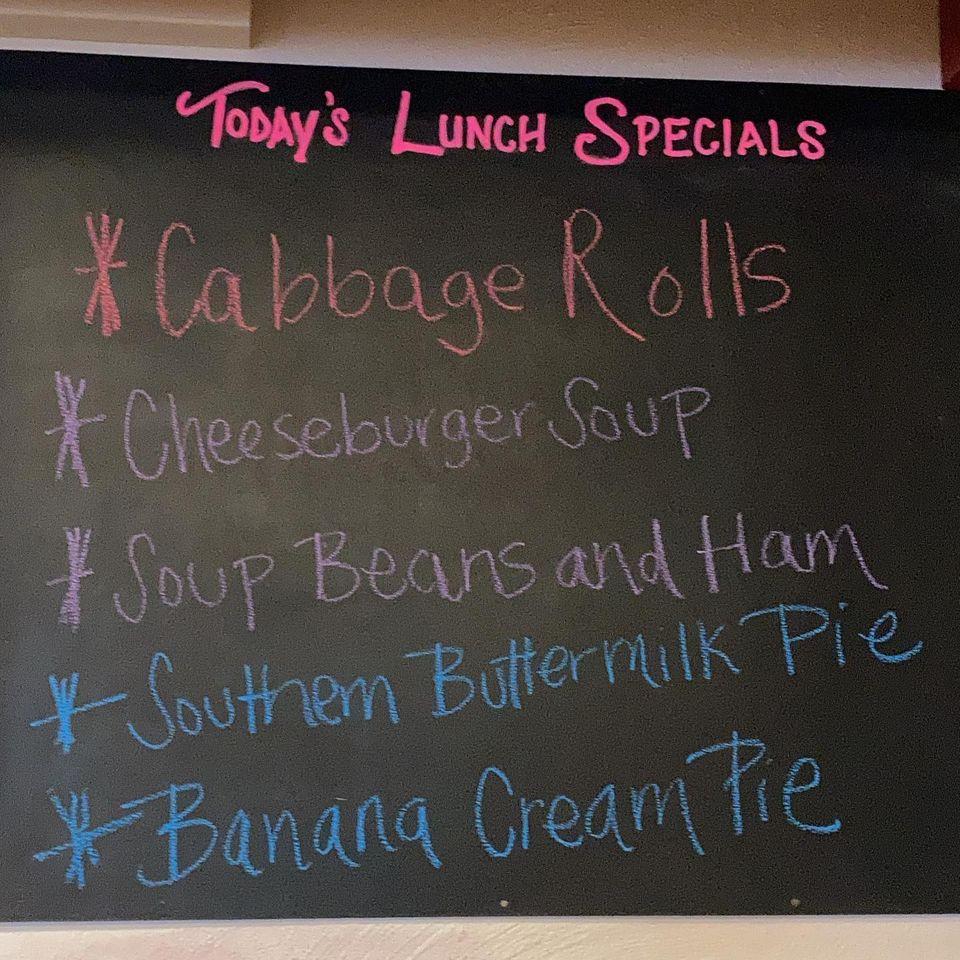 TODAY'S LUNCH SPECIALS
* Cabbage Rolls
* Cheeseburger Soup
* Soup Beans and Ham
* Southern Buttermilk Pie
* Banana Cream Pie